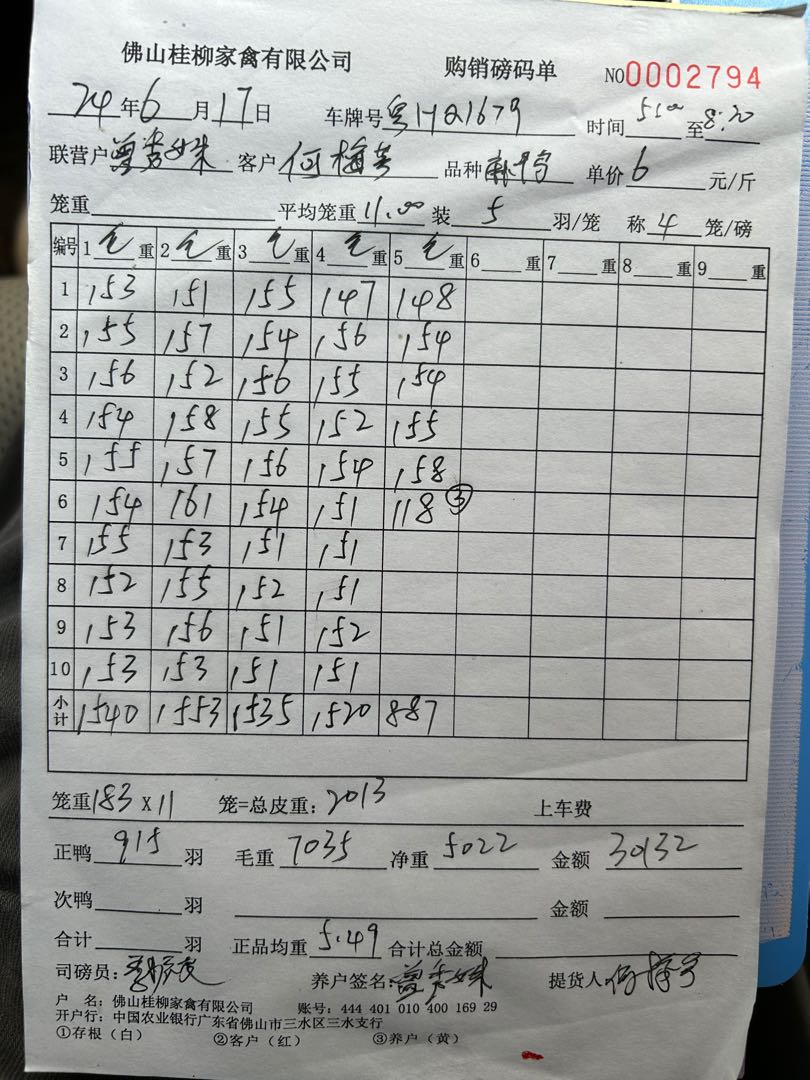 佛山桂柳家禽有限公司 购销磅码单 NO0002794
24年6月17日 车牌号粤HQ1679 时间 至8:20
联营户曾秀妹 客户何梅芳 品种 单价6元/斤
笼重 平均笼重11.00装5羽/笼 称4笼/磅
编号 1毛重 2毛重 3毛重 4毛重 5毛重 6重 7重 8重 9重
1 153 151 155 147 148
2 155 157 154 156 154
3 156 152 156 155 154
4 154 158 155 152 155
5 155 157 156 154 158
6 154 161 154 151 118 ③
7 155 153 151 151
8 152 155 152 151
9 153 156 151 152
10 153 153 151 151
小计 1540 1553 1535 1520 887
笼重183×11 笼=总皮重:2013 上车费
正鸭915羽 毛重7035 净重5022 金额30132
次鸭羽 金额
合计羽 正品均重5.49 合计总金额
司磅员: 养户签名:曾秀妹 提货人
户 名:佛山桂柳家禽有限公司 账号:444 401 010 400 169 29
开户行:中国农业银行广东省佛山市三水区三水支行
①存根(白) ②客户(红) ③养户(黄)